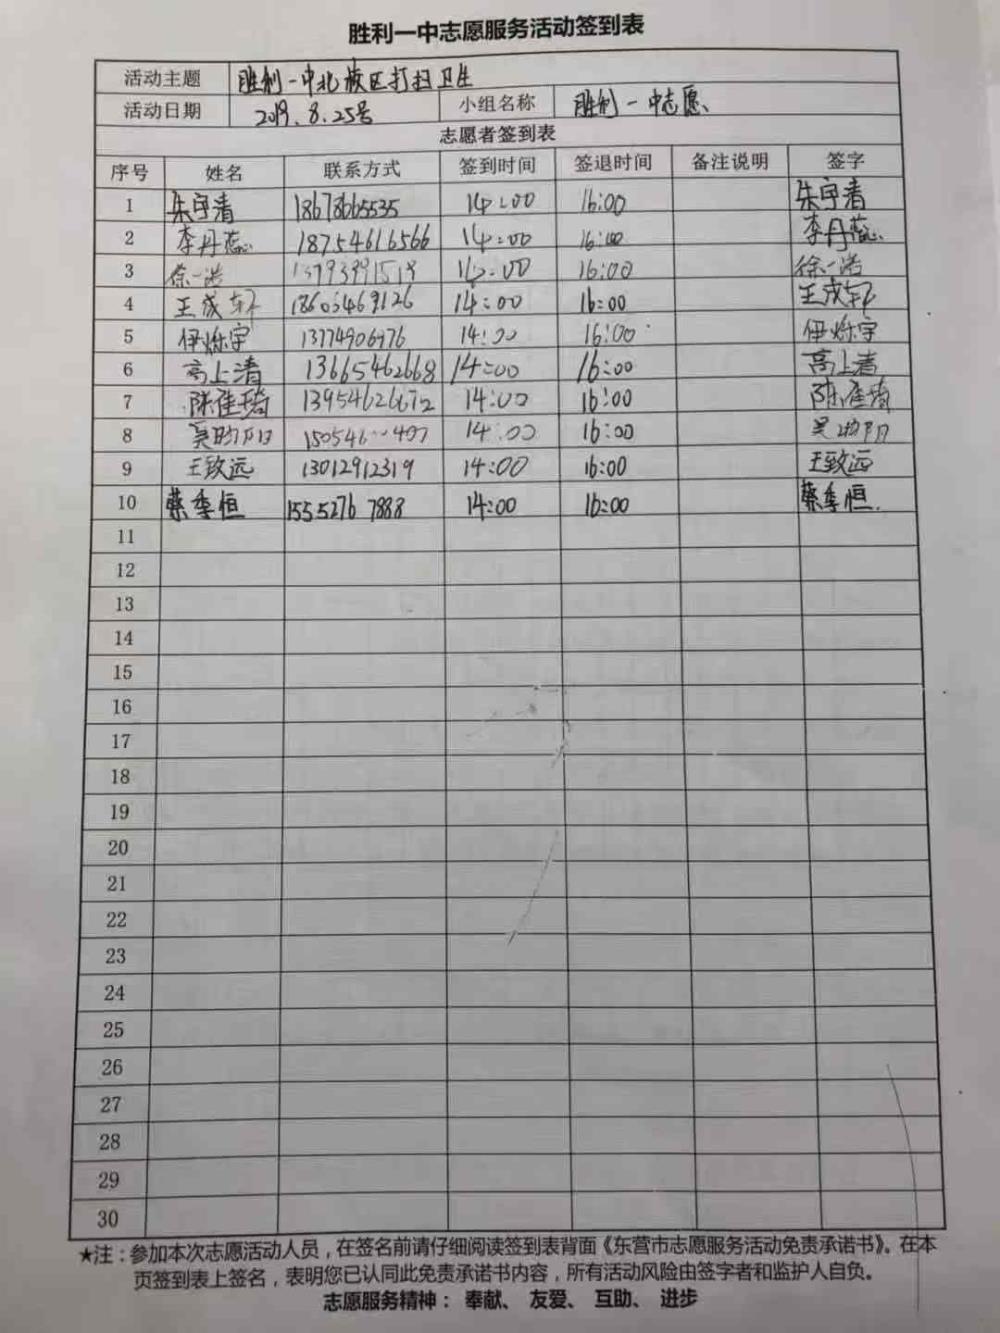 胜利一中志愿服务活动签到表
活动主题 胜利一中北校区打扫卫生
活动日期 2019.8.25号 小组名称 胜利一中志愿
志愿者签到表
序号 姓名 联系方式 签到时间 签退时间 备注说明 签字
1 朱宇清 18678665535 14:00 16:00 朱宇清
2 李丹蕊 18754616566 14:00 16:00 李丹蕊
3 徐一浩 14:00 16:00 徐一浩
4 王成轩 18603469126 14:00 16:00 王成轩
5 伊烁宇 13774906476 14:00 16:00 伊烁宇
6 高上清 13665462668 14:00 16:00 高上清
7 陈佳琦 13954626672 14:00 16:00 陈佳琦
8 14:00 16:00
9 王致远 13012912319 14:00 16:00 王致远
10 蔡季恒 15552767888 14:00 16:00 蔡季恒.
11
12
13
14
15
16
17
18
19
20
21
22
23
24
25
26
27
28
29
30
★注：参加本次志愿活动人员，在签名前请仔细阅读签到表背面《东营市志愿服务活动免责承诺书》。在本
页签到表上签名，表明您已认同此免责承诺书内容，所有活动风险由签字者和监护人自负。
志愿服务精神：奉献、友爱、互助、进步